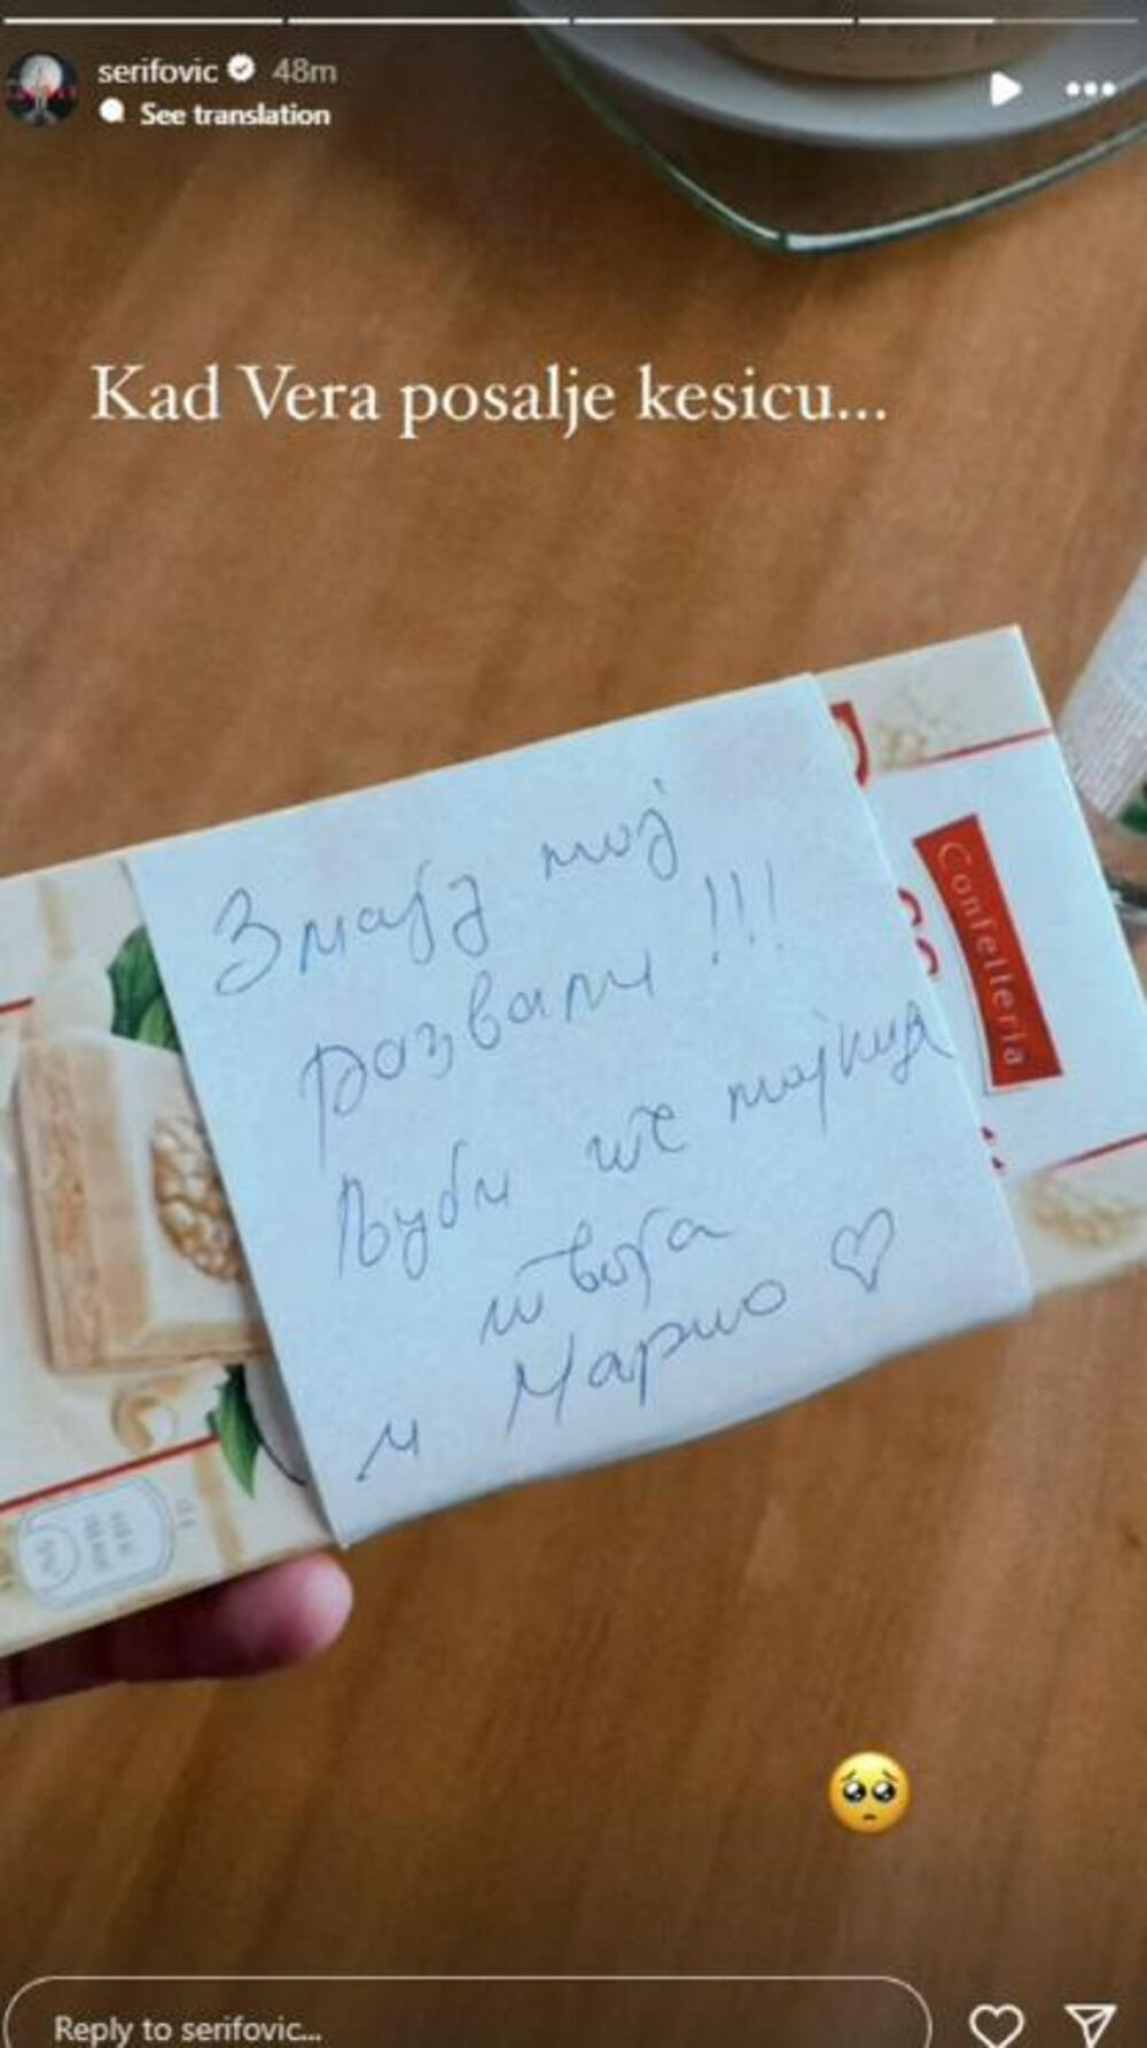 serifovic 48m
See translation
Kad Vera posalje kesicu...
Змају мој
развали !!!
Љуби те мајкица
твоја
и Марио
Confetteria
Reply to serifovic...